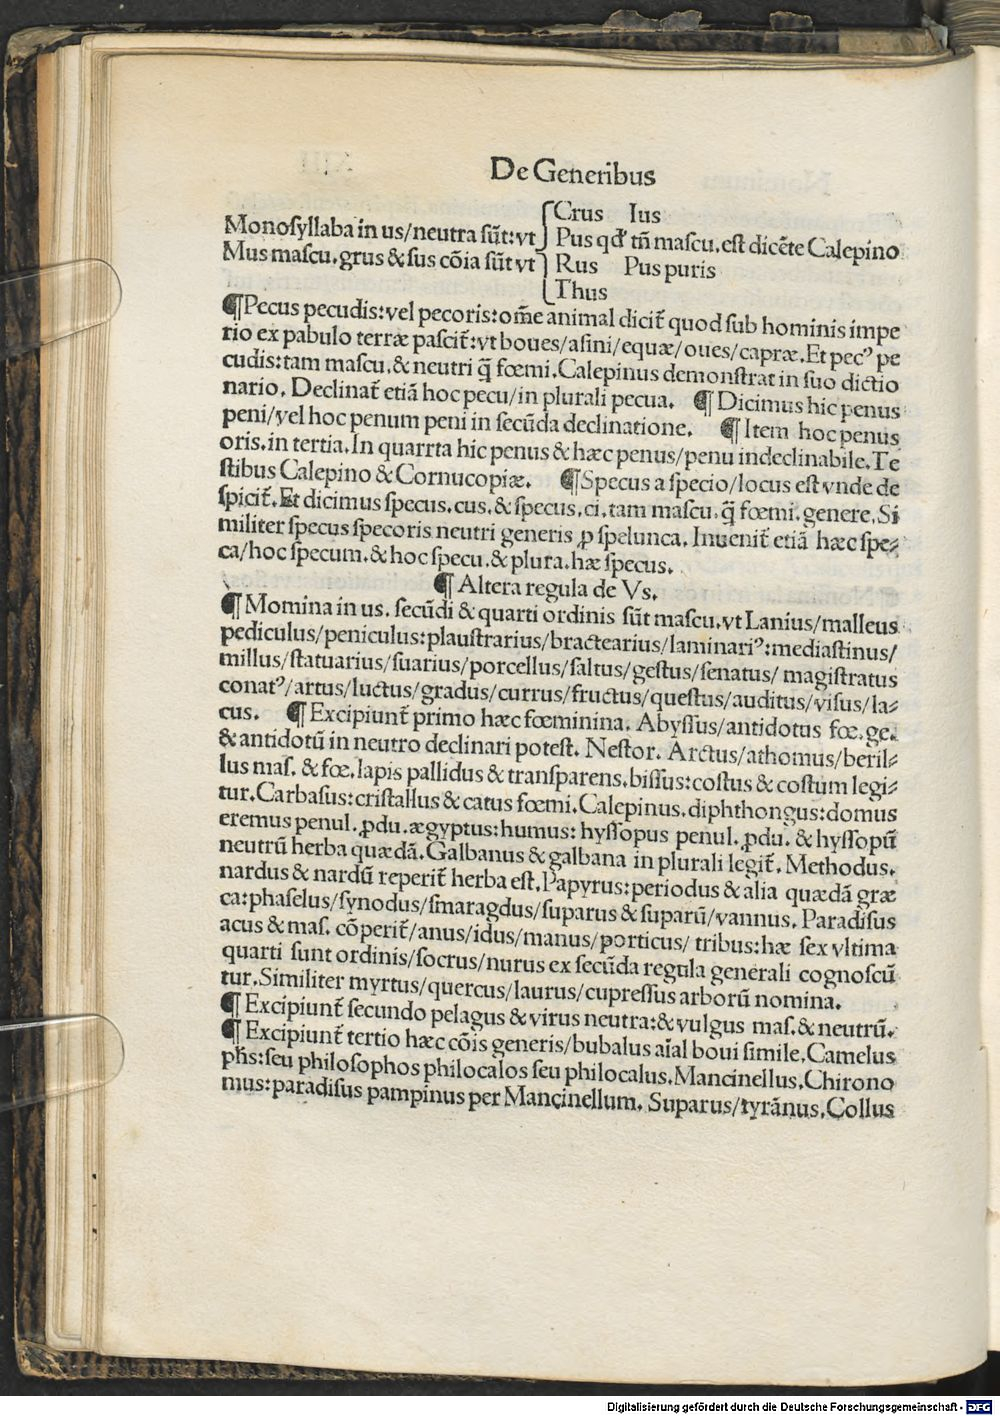 De Generibus
Monosyllaba in us/neutra sūt:vt
Mus mascu.grus & sus cōia sūt vt
Crus Ius
Pus qđ tñ mascu.est dicēte Calepino
Rus Pus puris
Thus
¶Pecus pecudis:vel pecoris:om̄e animal dicit̄ quod sub hominis impe
rio ex pabulo terræ pascit̄:vt boues/asini/equæ/oues/capræ.Et pecꝰ pe
cudis:tam mascu.& neutri q̄ fœmi.Calepinus demonstrat in suo dictio
nario. Declinat̄ etiā hoc pecu/in plurali pecua. ¶Dicimus hic penus
peni/vel hoc penum peni in secūda declinatione. ¶Item hoc penus
oris.in tertia.In quarrta hic penus & hæc penus/penu indeclinabile.Te
stibus Calepino & Cornucopiæ. ¶Specus a specio/locus est vnde de
spicit̄.Et dicimus specus.cus.& specus.ci.tam mascu.q̄ fœmi.genere.Si
militer specus specoris neutri generis ꝓ spelunca. Inuenit̄ etiā hæc spe⸗
ca/hoc specum.& hoc specu.& plura.hæ specus.
¶Altera regula de Vs.
¶Momina in us. secūdi & quarti ordinis sūt mascu.vt Lanius/malleus
pediculus/peniculus:plaustrarius/bractearius/laminariꝰ:mediastinus/
millus/statuarius/suarius/porcellus/saltus/gestus/senatus/ magistratus
conatꝰ/artus/luctus/gradus/currus/fructus/questus/auditus/visus/la⸗
cus. ¶Excipiunt̄ primo hæc fœminina. Abyssus/antidotus fœ.ge.
& antidotū in neutro declinari potest. Nestor. Arctus/athomus/beril⸗
lus mas. & fœ.lapis pallidus & transparens.bissus:costus & costum legi⸗
tur.Carbasus:cristallus & catus fœmi.Calepinus.diphthongus:domus
eremus penul.ꝓdu.ægyptus:humus: hyssopus penul.ꝓdu. & hyssopū
neutrū herba quædā.Galbanus & galbana in plurali legit̄. Methodus.
nardus & nardū reperit̄ herba est.Papyrus:periodus & alia quædā græ
ca:phaselus/synodus/smaragdus/suparus & suparū/vannus. Paradisus
acus & mas. cōperit̄/anus/idus/manus/porticus/ tribus:hæ sex vltima
quarti sunt ordinis/socrus/nurus ex secūda regula generali cognoscū
tur.Similiter myrtus/quercus/laurus/cupressus arborū nomina.
¶Excipiunt̄ secundo pelagus & virus neutra:& vulgus mas.& neutrū.
¶Excipiunt̄ tertio hæc cōis generis/bubalus aīal boui simile.Camelus
ph̄s:seu philosophos philocalos seu philocalus.Mancinellus.Chirono
mus:paradisus pampinus per Mancinellum. Suparus/tyrānus.Collus
Digitalisierung gefördert durch die Deutsche Forschungsgemeinschaft - DFG